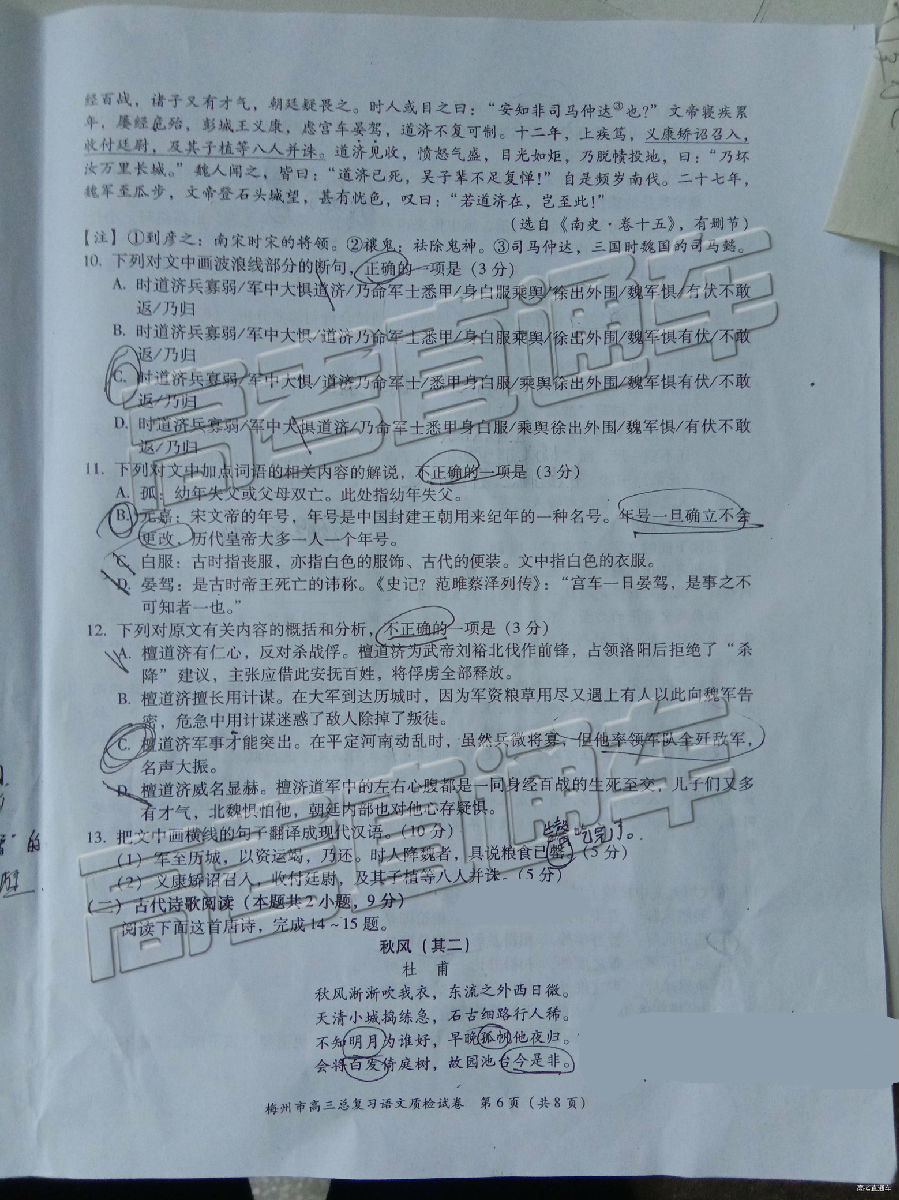 经百战，诸子又有才气，朝廷疑畏之。时人或目之曰：“安知非司马仲达③也？”文帝寝疾累
年，屡经危殆，彭城王义康，虑宫车晏驾，道济不复可制。十二年，上疾笃，义康矫诏召入，
收付廷尉，及其子植等八人并诛。道济见收，愤怒气盛，目光如炬，乃脱帻投地，曰：“乃坏
汝万里长城。”魏人闻之，皆曰：“道济已死，吴子辈不足复惮！”自是频岁南伐。二十七年，
魏军至瓜步，文帝登石头城望，甚有忧色，叹曰：“若道济在，岂至此！”
（选自《南史·卷十五》，有删节）
【注】①到彦之：南宋时宋的将领。②禳鬼：祛除鬼神。③司马仲达，三国时魏国的司马懿。
10. 下列对文中画波浪线部分的断句，正确的一项是（3 分）
A. 时道济兵寡弱/军中大惧道济/乃命军士悉甲/身白服乘舆/徐出外围/魏军惧/有伏不敢
返/乃归
B. 时道济兵寡弱/军中大惧/道济乃命军士悉甲/身白服乘舆/徐出外围/魏军惧有伏/不敢
返/乃归
C. 时道济兵寡弱/军中大惧/道济乃命军士/悉甲身白服乘舆/徐出外围/魏军惧有伏/不敢
返/乃归
D. 时道济兵寡弱/军中大惧道济/乃命军士悉甲身白服/乘舆徐出外围/魏军惧/有伏不敢
返/乃归
11. 下列对文中加点词语的相关内容的解说，不正确的一项是（3 分）
A. 孤：幼年失父或父母双亡。此处指幼年失父。
B. 元嘉：宋文帝的年号，年号是中国封建王朝用来纪年的一种名号。年号一旦确立不会
更改，历代皇帝大多一人一个年号。
C. 白服：古时指丧服，亦指白色的服饰、古代的便装。文中指白色的衣服。
D. 晏驾：是古时帝王死亡的讳称。《史记？范雎蔡泽列传》：“宫车一日晏驾，是事之不
可知者一也。”
12. 下列对原文有关内容的概括和分析，不正确的一项是（3 分）
A. 檀道济有仁心，反对杀战俘。檀道济为武帝刘裕北伐作前锋，占领洛阳后拒绝了“杀
降”建议，主张应借此安抚百姓，将俘虏全部释放。
B. 檀道济擅长用计谋。在大军到达历城时，因为军资粮草用尽又遇上有人以此向魏军告
密，危急中用计谋迷惑了敌人除掉了叛徒。
C. 檀道济军事才能突出。在平定河南动乱时，虽然兵微将寡，但他率领军队全歼敌军，
名声大振。
D. 檀道济威名显赫。檀济道军中的左右心腹都是一同身经百战的生死至交，儿子们又多
有才气，北魏惧怕他，朝廷内部也对他心存疑惧。
13. 把文中画横线的句子翻译成现代汉语。（10 分）
吃完了。
（1）军至历城，以资运竭，乃还。时人降魏者，具说粮食已罄（5 分）
（2）义康矫诏召入，收付廷尉，及其子植等八人并诛.（5 分）
（二）古代诗歌阅读（本题共2 小题，9 分）
阅读下面这首唐诗，完成14～15题。
秋风（其二）
杜 甫
秋风淅淅吹我衣，东流之外西日微。
天清小城捣练急，石古细路行人稀。
不知明月为谁好，早晚孤帆他夜归。
会将白发倚庭树，故园池台今是非。
梅州市高三总复习语文质检试卷 第 6 页（共 8 页）
高考直通车
高考直通车
高考直通车